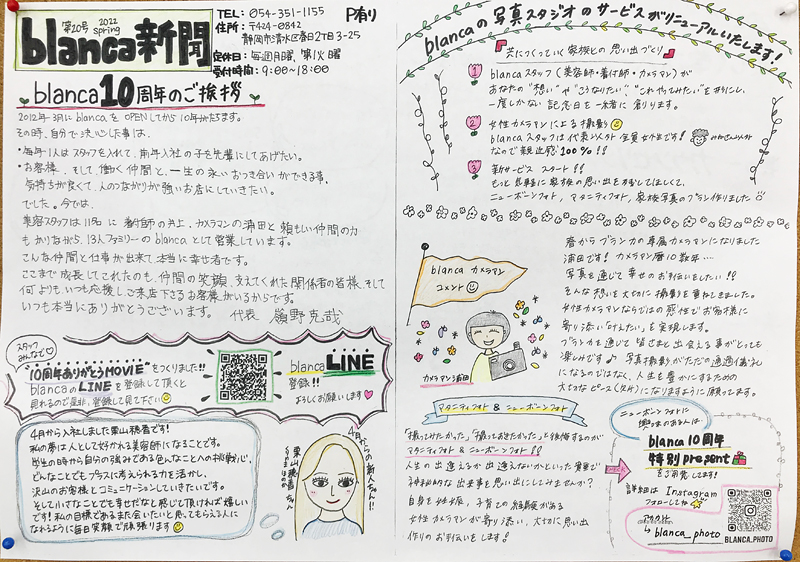 第20号 2022 spring
blanca新聞
TEL：054-351-1155 P有り
住所：〒424-0842
静岡市清水区春日2丁目3-25
定休日：毎週月曜、第1火曜
受付時間：9:00〜18:00
blanca10周年のご挨拶
2012年3月にblancaをOPENしてから10年がたちます。
その時、自分で決心した事は、
・毎年1人はスタッフを入れて、前年入社の子を先輩にしてあげたい。
・お客様、そして働く仲間と、一生の永いおつき合いができる事。
気持ちが良くて、人のつながりが強いお店にしていきたい。
でした。今では、
美容スタッフは11名に着付師の井上、カメラマンの浦田と頼もしい仲間の力
もかりながら、13人ファミリーのblancaとして営業しています。
こんな仲間と仕事が出来て、本当に幸せ者です。
ここまで成長してこれたのも、仲間の笑顔、支えてくれた関係者の皆様、そして
何よりも、いつも応援しご来店下さるお客様がいるからです。
いつも本当にありがとうございます。 代表 嶺野克哉
スタッフみんなで
"10周年ありがとうMOVIE"をつくりました!!
blancaのLINEを登録して頂くと
見れるので是非、登録して見て下さい
blanca LINE
登録!!
よろしくお願いします
4月から入社しました栗山穂香です!
私の夢は人として好かれる美容師になることです。
学生の時から自分の強みである色んなことへの挑戦心、
どんなこともプラスに考えられる力を活かし、
沢山のお客様とコミュニケーションしていきたいです。
そして小さなことでも幸せだなと感じて頂ければ嬉しい
です!私の目標であるまた会いたいと思ってもらえる人に
なれるように毎日笑顔で頑張ります
4月からの新人さん!!
栗山穂香ちゃん
くりやまほのか
blancaの写真スタジオのサービスがリニューアルいたします!
『共につくっていく家族との思い出づくり』
1 blancaスタッフ(美容師・着付師・カメラマン)が
あなたの"想い"や"こうなりたい""これやってみたい"を形にし、
一度しかない記念日を一緒に創ります。
2 女性カメラマンによる撮影
blancaスタッフは代表以外全員女性です!
なので親近感100%!!
3 新サービススタート!!
もっと気軽に家族の思い出を力にしてほしくて、
ニューボーンフォト、マタニティフォト、家族写真のプラン作りました
blanca カメラマン
コメント
カメラマン浦田
春からブランカの専属カメラマンになりました
浦田です!カメラマン歴10数年…
写真を通じて幸せのお手伝いをしたい!!
そんな想いを大切に撮影を重ねてきました。
女性カメラマンならではの感性でお客様に
寄り添い"叶えたい"を実現します。
ブランカを通じて皆さまと出会える事がとっても
楽しみです♪ 写真撮影がただの通過儀礼
になるのではなく、人生を豊かにするための
大切なピース(欠片)になりますように願ってます。
マタニティフォト & ニューボーンフォト
「撮ってみたかった」「撮っておきたかった」と後悔するのが
マタニティフォト & ニューボーンフォト!!
人生の出逢えるか出逢えないかといった貴重で
神秘的な出来事を思い出にしてみませんか?
自身も妊娠、子育ての経験がある
女性カメラマンが寄り添い、大切に思い出
作りのお手伝いをします!
CHECK
ニューボーンフォトに
興味のあるあなたは
blanca10周年
特別present
をご用意してます!
詳細はInstagram
フォローしてね
↳ blanca_photo
BLANCA_PHOTO